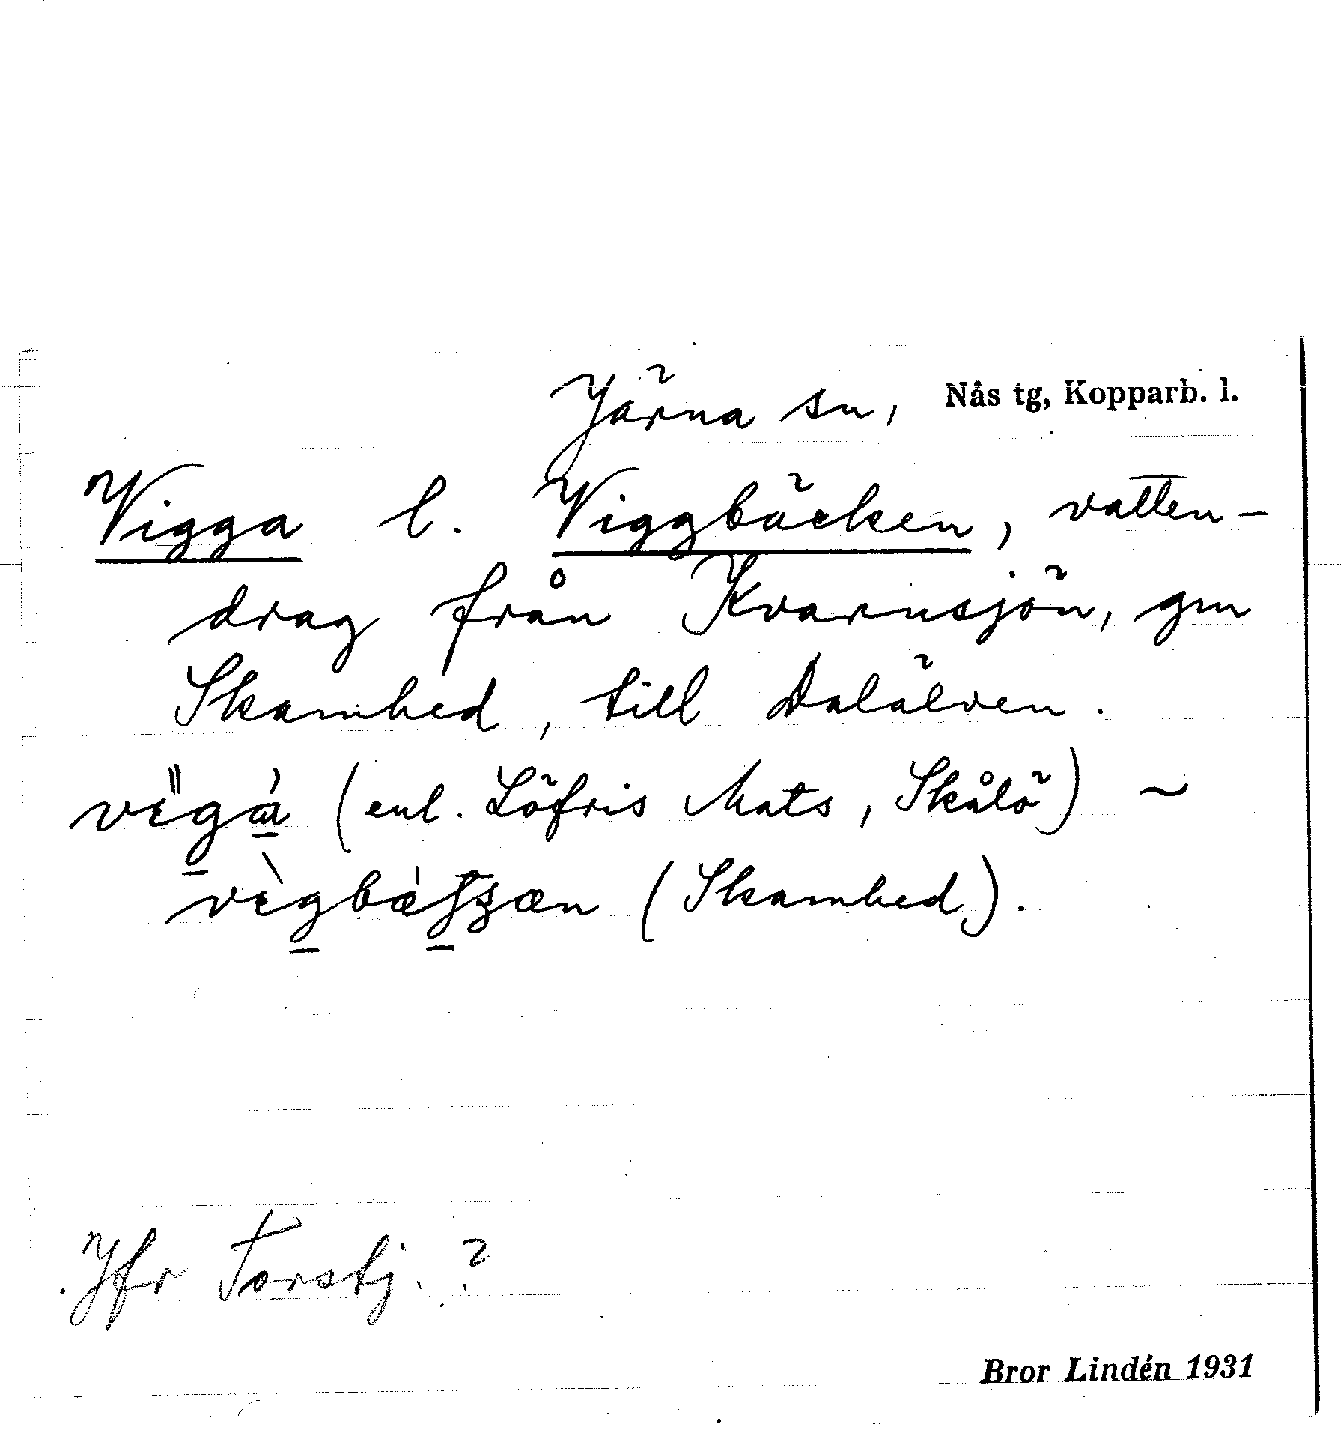 Järna sn, Nås tg, Kopparb. l.
Vigga l. Viggbäcken, vatten-
drag från Kvarnsjön, gm
Skamhed, till Dalälven.
(enl. Löfris Mats, Skålö) ~
(Skamhed).
Jfr Torstj. ?
Bror Lindén 1931